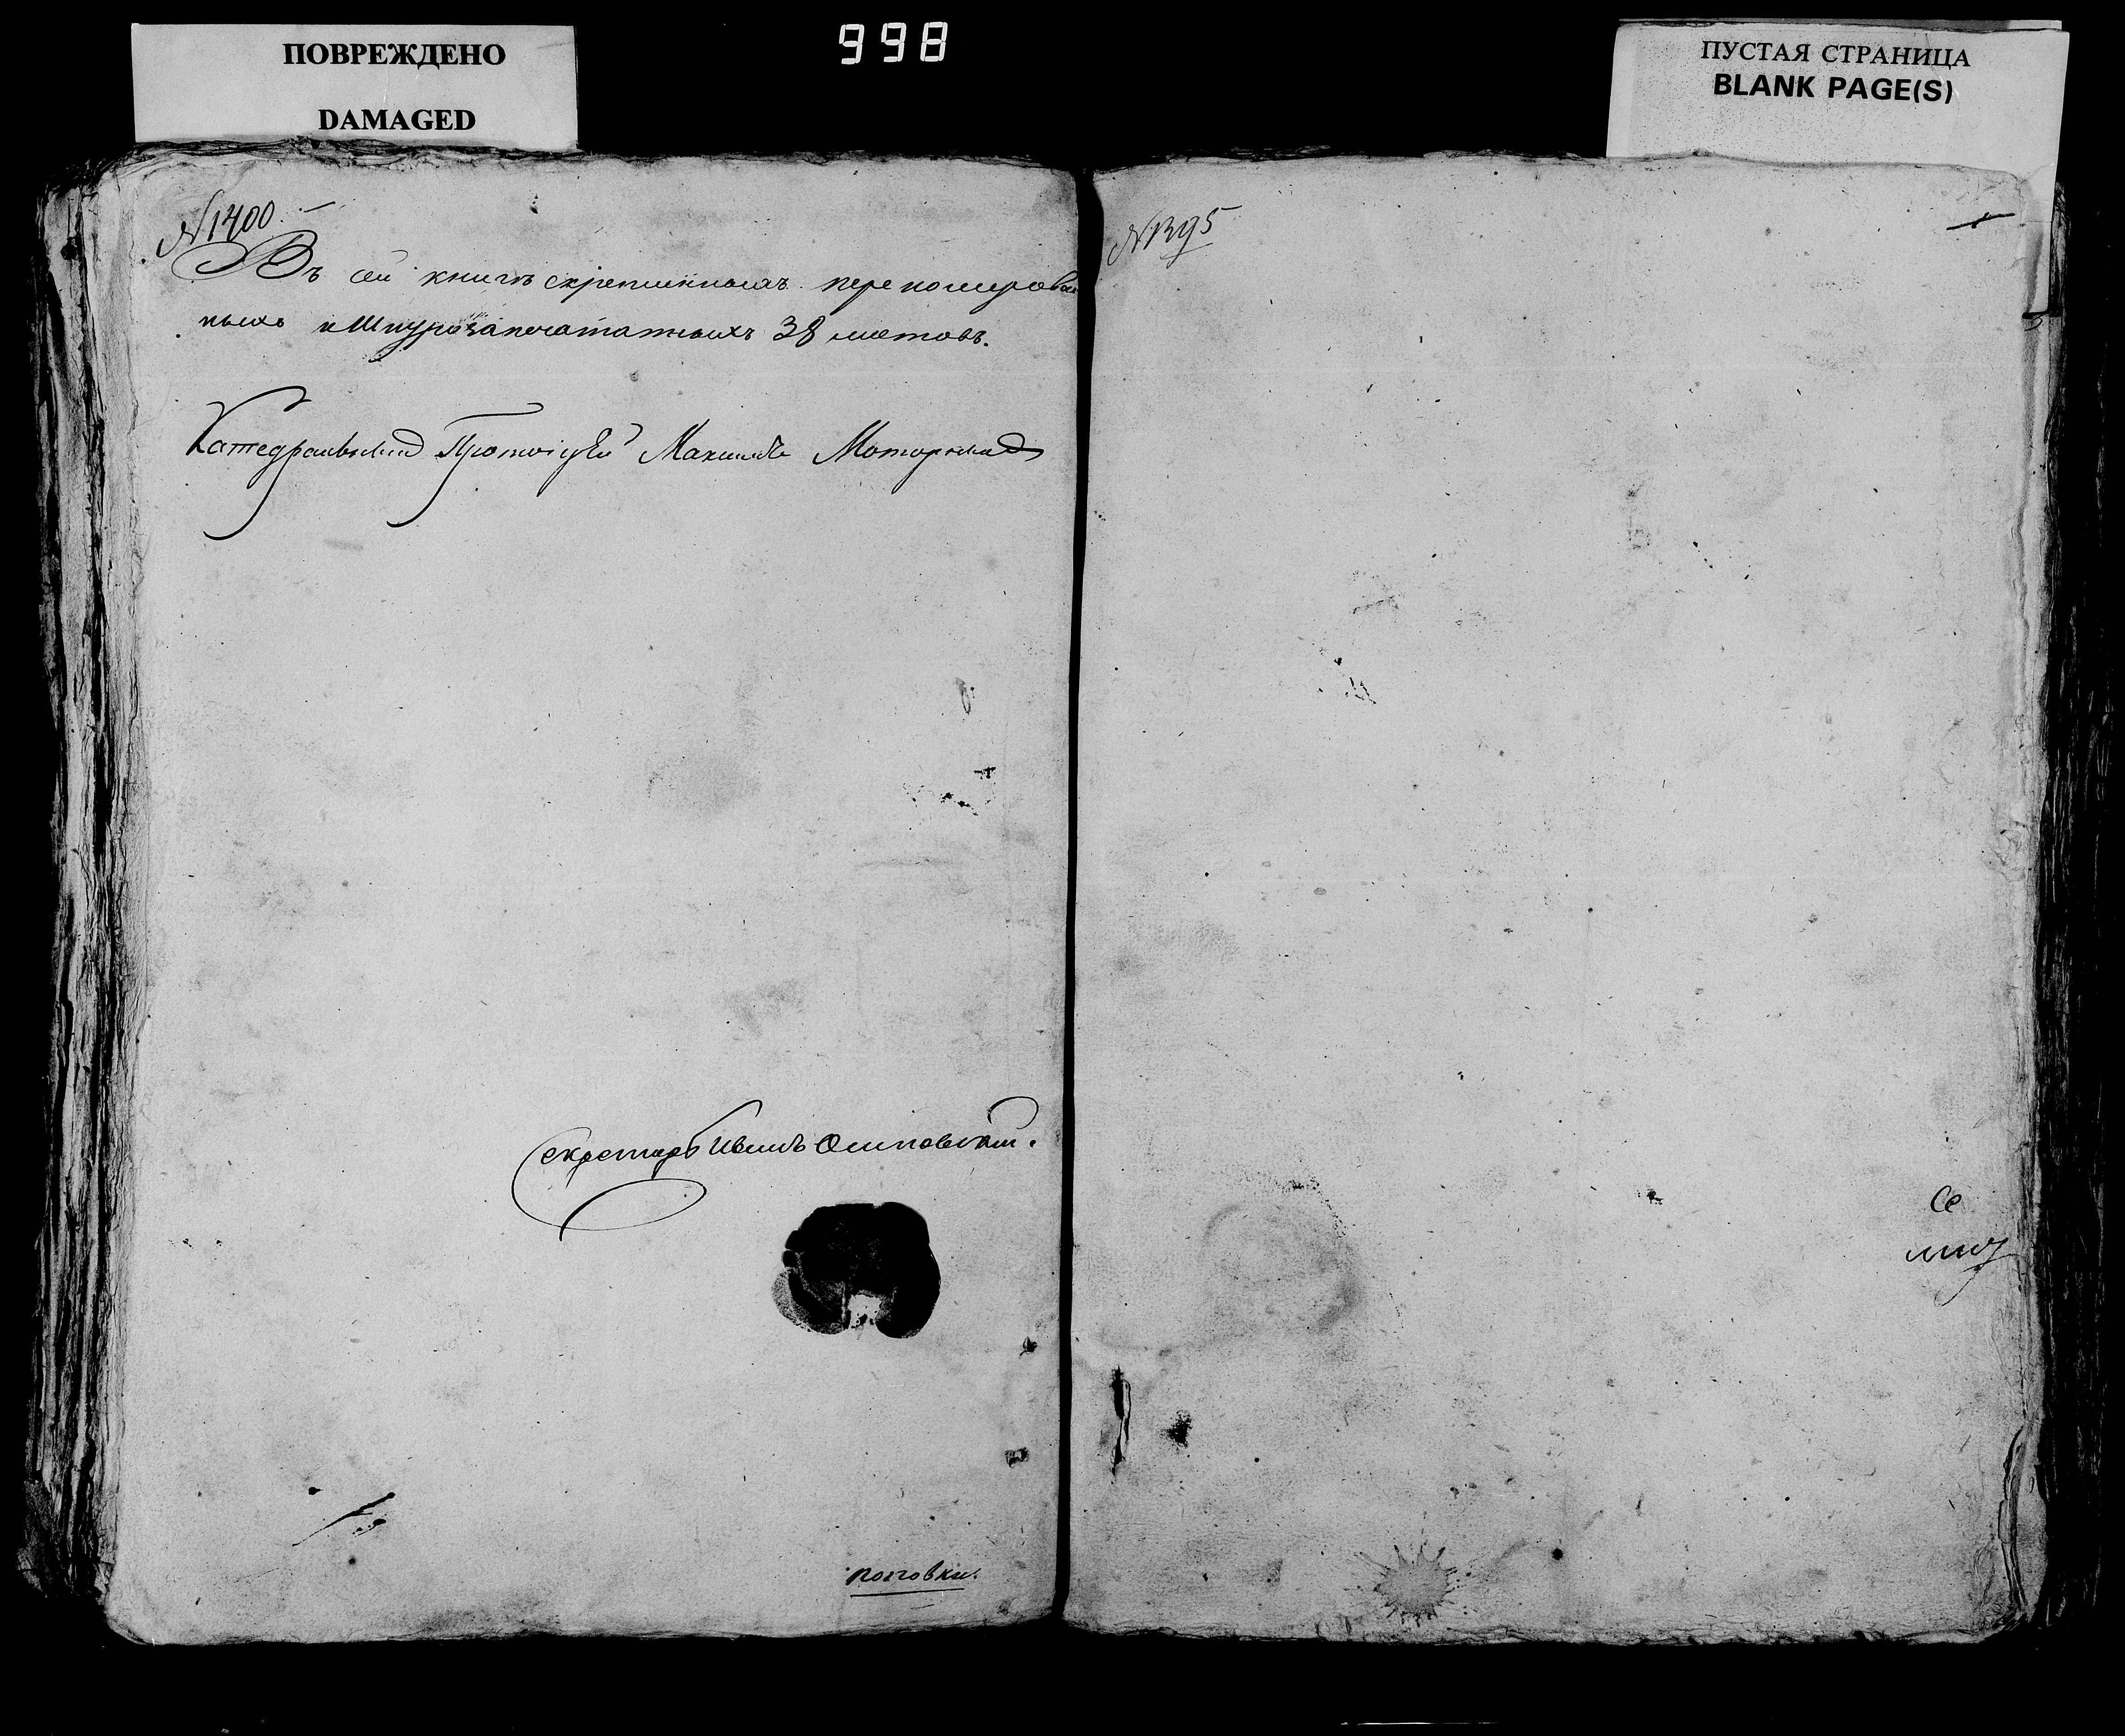 ПОВРЕЖДЕНО
DAMAGED
998
ПУСТАЯ СТРАНИЦА
BLANK PAGE(S)
№1400.
Въ сей книгѣ скрепленныхъ перенумерован
ныхъ и Шнурозапечатанныхъ 38 листовъ.
Катедральный Протоіерей Максимъ Моторный
Секретарь Иванъ Осиповский.
поповки.
№1395
Се